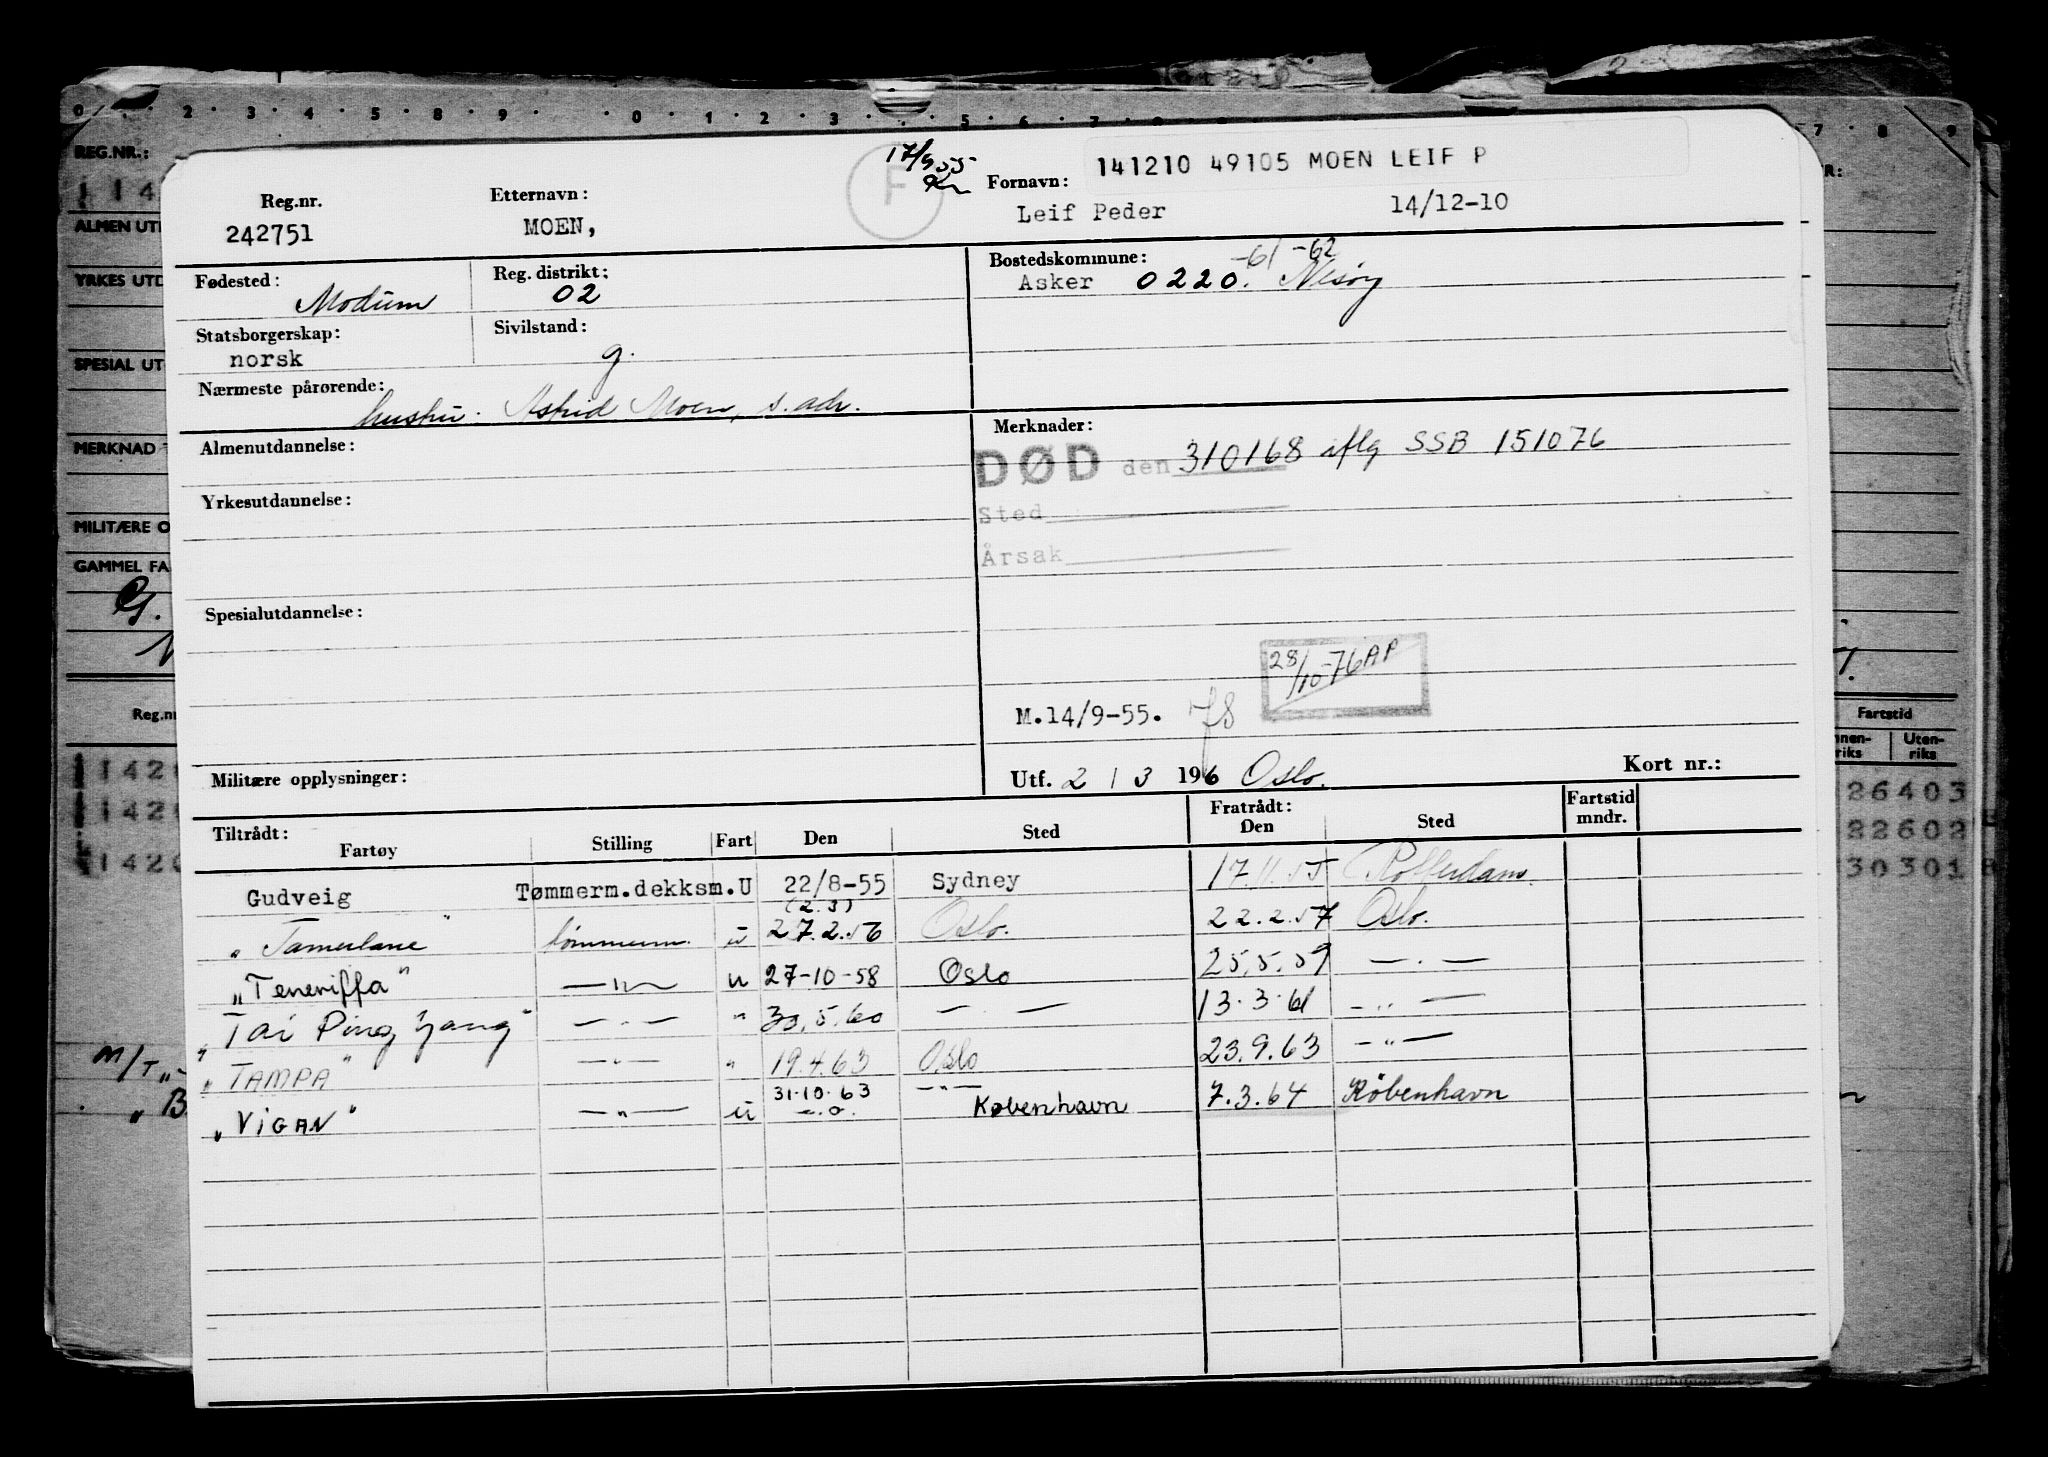 0 2 3 4 5 8 9 0 1 2 3 5 6 7 7 8 9
REG.NR.:
ALMEN UT
YRKES UTD
SPESIAL UT
MERKNAD
MILITÆRE O
GAMMEL FA
G.
Reg.nr
1420
1420
1420
M/T
"B
Fartstid
Uten-
riks
26403
22602
30301
17/9 55
F
141210 49105 MOEN LEIF P
Reg.nr. Etternavn: Fornavn:
242751 MOEN, Leif Peder 14/12-10
Fødested: Reg. distrikt: Bostedskommune: -61 -62
Modum 02 Asker 0220. Nesøy
Statsborgerskap: Sivilstand:
norsk g.
Nærmeste pårørende:
hustru. Astrid Moen, s. adr.
Almenutdannelse: Merknader:
DØD den 310168 iflg SSB 151076
Yrkesutdannelse:
Sted
Årsak
Spesialutdannelse:
28/10-76 AP
M.14/9-55. 78
Militære opplysninger: Utf. 2 / 3 196 Oslo. Kort nr.:
Tiltrådt: Fratrådt: Fartstid
Fartøy Stilling Fart Den Sted Den Sted mndr.
Gudveig Tømmerm.dekksm. U 22/8-55 Sydney 17.11.55 Rotterdam.
(2.3)
"Tamerlane" tømmerm. u 27.2.56 Oslo. 22.2.57 Oslo.
"Teneriffa" —"— u 27-10-58 Oslo 25.5.59 —.—
"Tai Ping Yang" —.— " 30.5.60 —.— 13.3.61 —"—
"TAMPA" —"— " 19.4.63 Oslo 23.9.63 —"—
31.10.63 —"—
"VIGAN" —"— u —.o. København 7.3.64 København